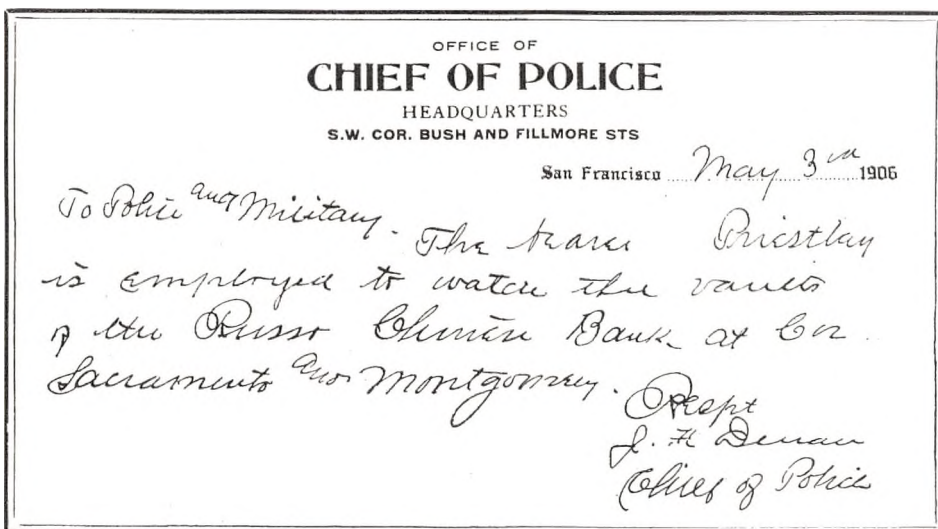 OFFICE OF
CHIEF OF POLICE
HEADQUARTERS
S.W. COR. BUSH AND FILLMORE STS
San Francisco May 3rd 1906
To Police and Military.
The bearer Priestley
is employed to watch the vaults
of the Russo Chinese Bank at Cor
Sacramento and Montgomery.
Respt
J. F. Dinan
Chief of Police